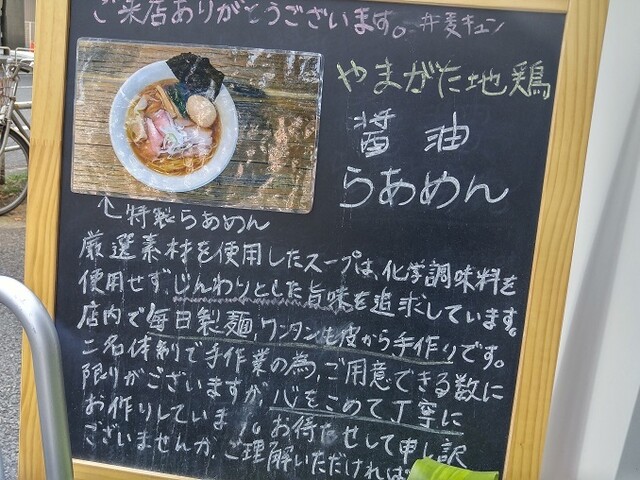 ご来店ありがとうございます。#麦キュン
やまがた地鶏
醤油
らあめん
↑特製らあめん
厳選素材を使用したスープは、化学調味料を
使用せず、じんわりとした旨味を追求しています。
店内で毎日製麺、ワンタンも皮から手作りです。
二名体制で手作業の為、ご用意できる数に
限りがございますが、心をこめて丁寧に
お作りしています。お待たせして申し訳
ございませんが、ご理解いただければ